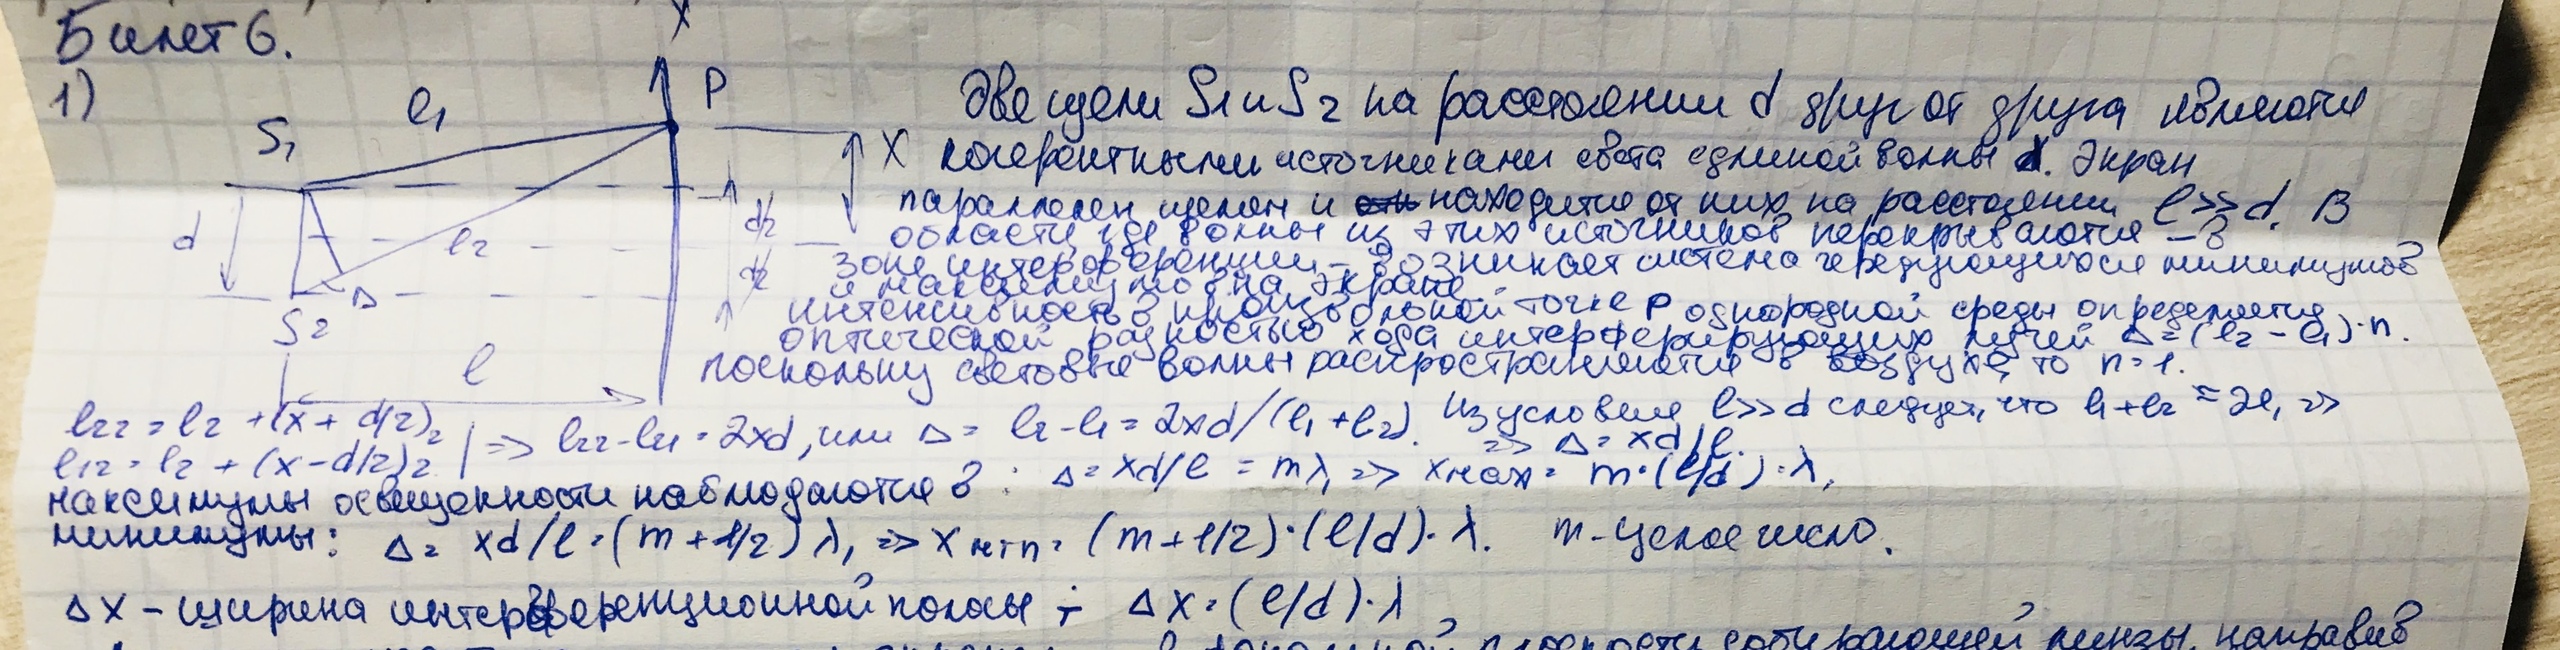 Билет 6.
1)
X
P
S1
l1
d
l2
Δ
S2
l
X
d/2
d/2
Две щели S1 и S2 на расстоянии d друг от друга являются
когерентными источниками света с длиной волны λ. Экран
параллелен щелям и находится от них на расстоянии l>>d. В
области, где волны из этих источников перекрываются – в
зоне интерференции – возникает система чередующихся минимумов
и максимумов на экране.
интенсивность в произвольной точке P однородной среды определяется
оптической разностью хода интерферирующих лучей Δ=(l2-l1)·n.
поскольку световые волны распространяются в воздухе, то n=1.
l22 = l2 + (x + d/2)2
l12 = l2 + (x-d/2)2 | => l22-l21 = 2xd, или Δ = l2-l1 = 2xd/(l1+l2). Из условия l>>d следует, что l1+l2 ≈ 2l, =>
=> Δ = xd/l.
максимумы освещенности наблюдаются в : Δ = xd/l = mλ, => xmax = m·(l/d)·λ,
минимумы: Δ = xd/l = (m+1/2)λ, => xmin = (m+1/2)·(l/d)·λ. m-целое число.
Δx – ширина интерференционной полосы ; Δx = (l/d)·λ
плоскости собирающей линзы, направив